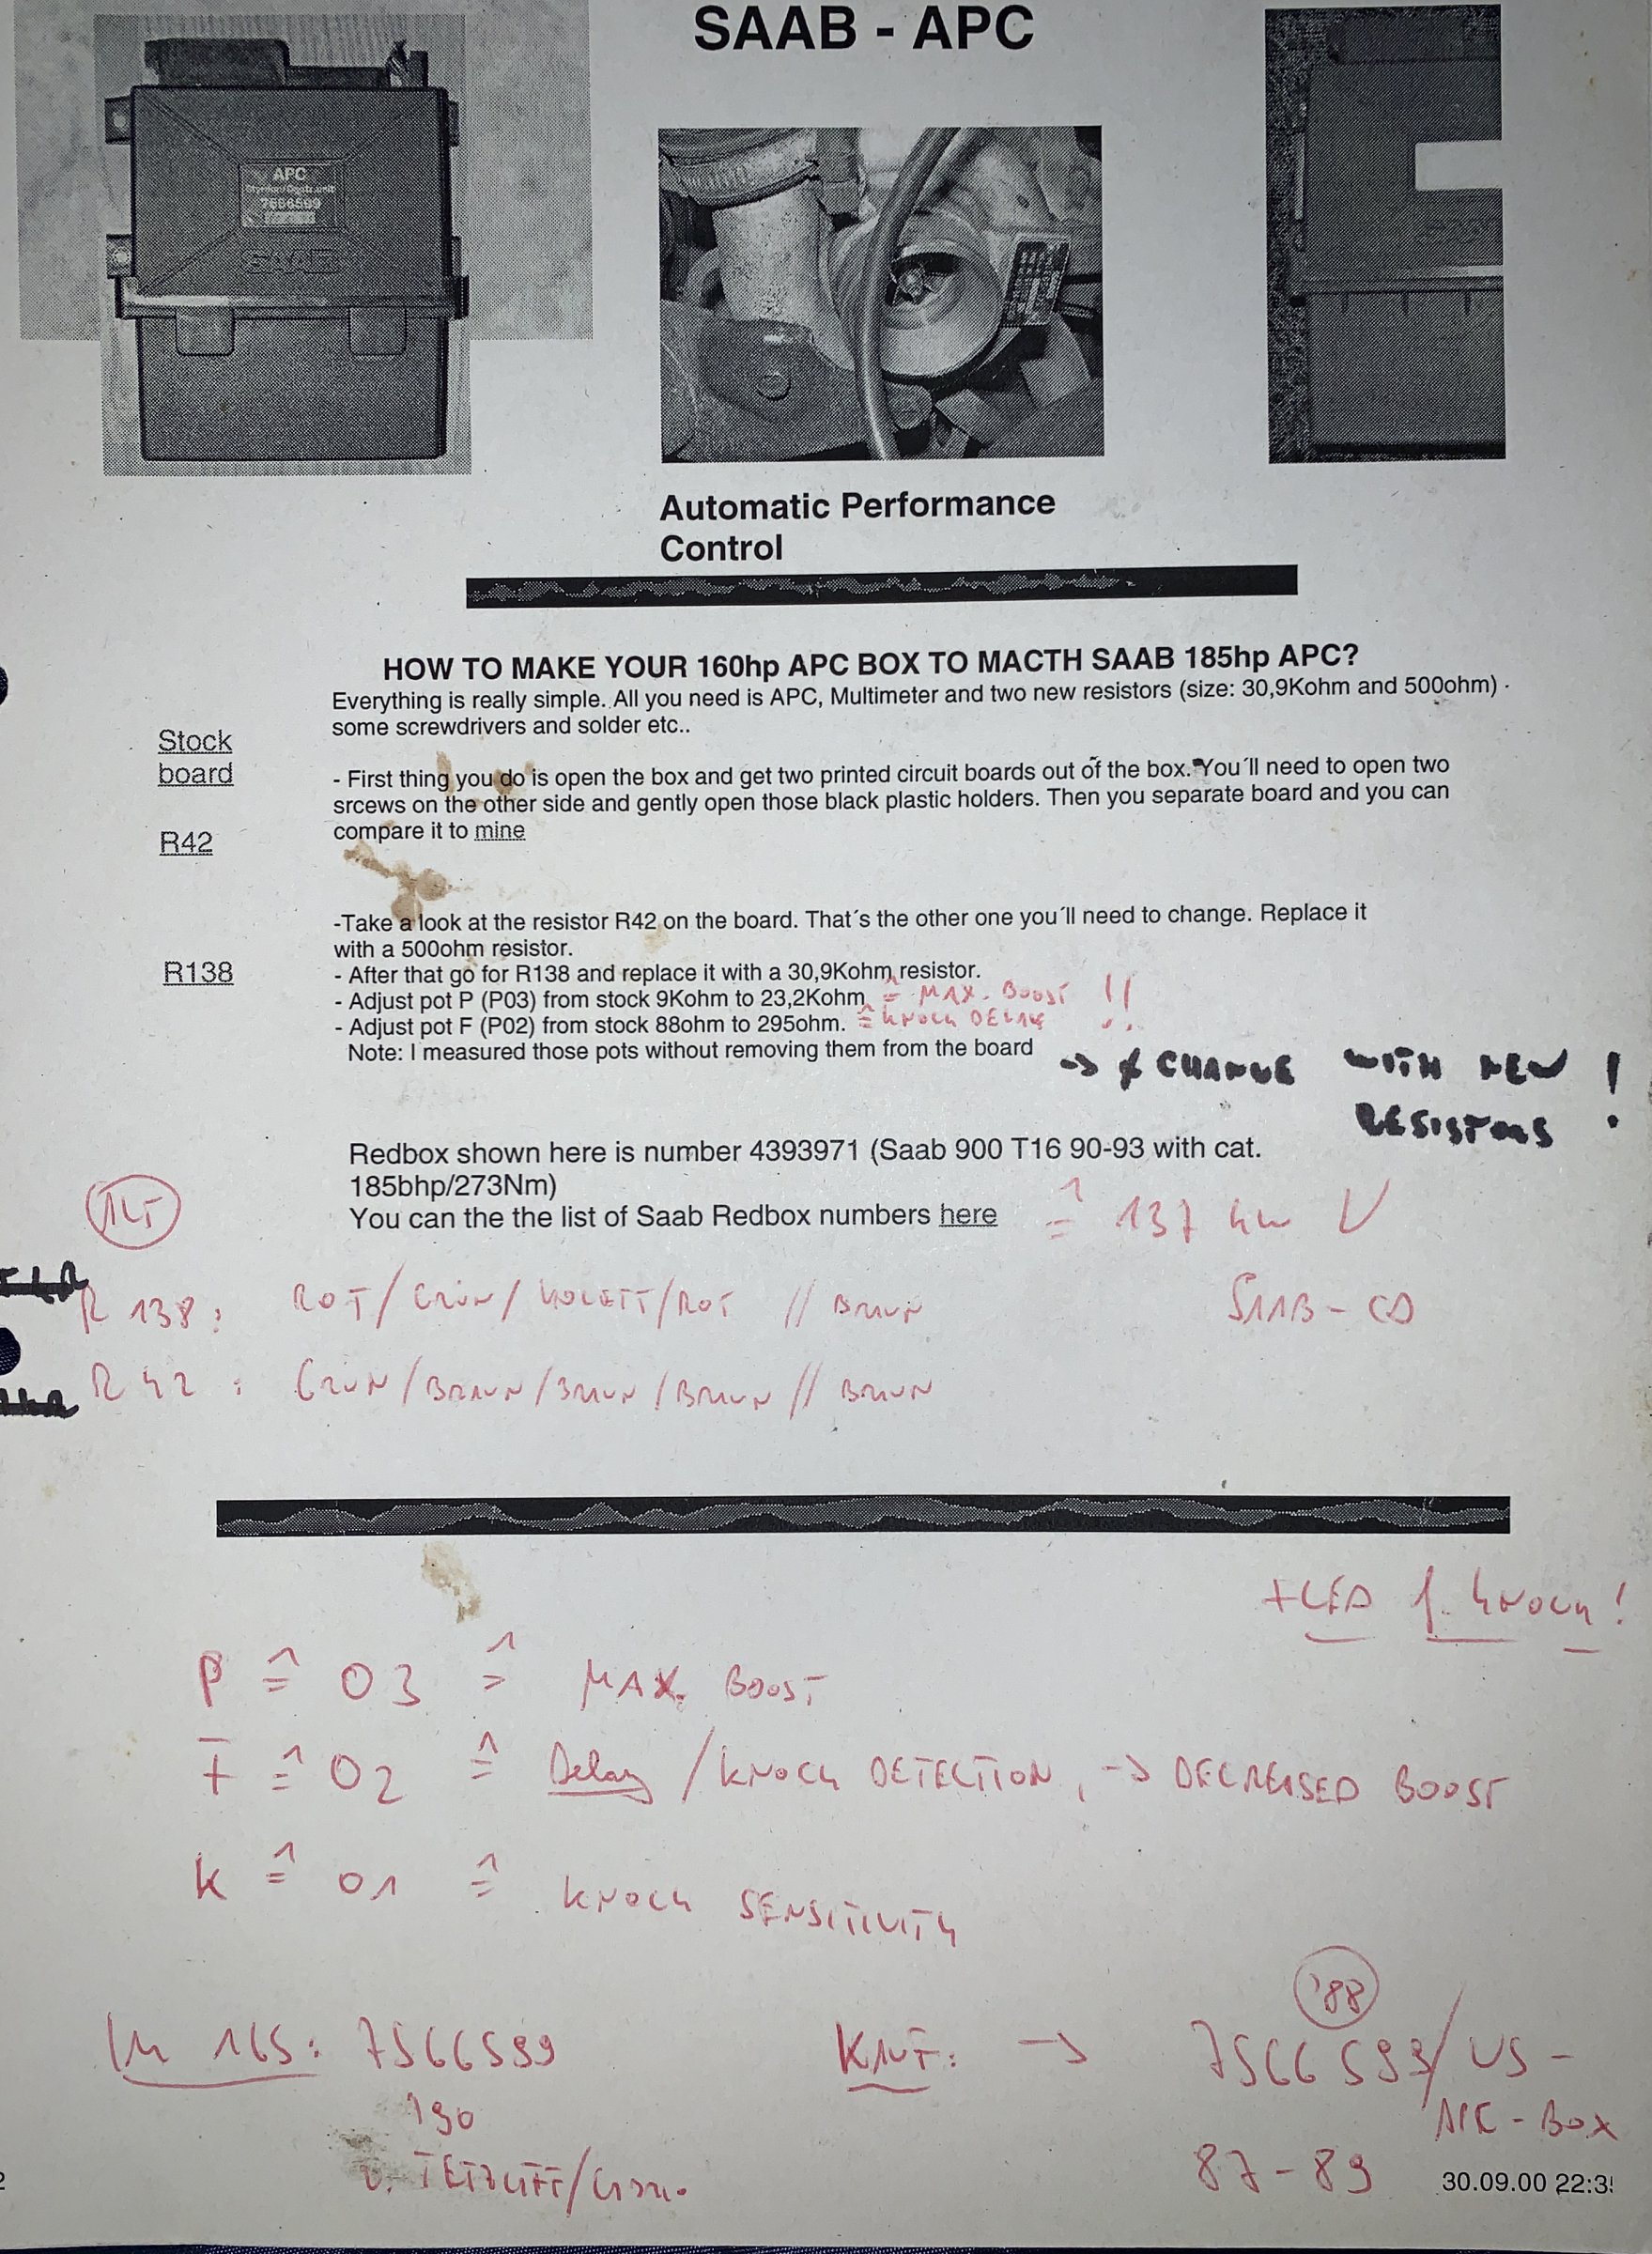 SAAB - APC
APC
7566599
SAAB
Automatic Performance
Control
HOW TO MAKE YOUR 160hp APC BOX TO MACTH SAAB 185hp APC?
Everything is really simple. All you need is APC, Multimeter and two new resistors (size: 30,9Kohm and 500ohm)
some screwdrivers and solder etc..
Stock
board
- First thing you do is open the box and get two printed circuit boards out of the box. You´ll need to open two
srcews on the other side and gently open those black plastic holders. Then you separate board and you can
compare it to mine
R42
-Take a look at the resistor R42 on the board. That´s the other one you´ll need to change. Replace it
with a 500ohm resistor.
R138
- After that go for R138 and replace it with a 30,9Kohm resistor.
- Adjust pot P (P03) from stock 9Kohm to 23,2Kohm ≙ MAX. BOOST !!
- Adjust pot F (P02) from stock 88ohm to 295ohm. ≙ KNOCK DELAY
Note: I measured those pots without removing them from the board
-> CHANGE WITH NEW !
RESISTORS
Redbox shown here is number 4393971 (Saab 900 T16 90-93 with cat.
185bhp/273Nm)
You can the the list of Saab Redbox numbers here
≙ 137 kW
SAAB - CD
ALT
R 138: ROT/GRÜN/VIOLETT/ROT // BRAUN
R 42: GRÜN/BRAUN/BRAUN/BRAUN // BRAUN
+ LED f. KNOCK!
P ≙ 03 ≙ MAX. BOOST
F ≙ 02 ≙ Delay / KNOCK DETECTION, -> DECREASED BOOST
K ≙ 01 ≙ KNOCK SENSITIVITY
'88
165: 7566599
'90
KAT: -> 7566599/US-
APC-BOX
87-89
30.09.00 22:3